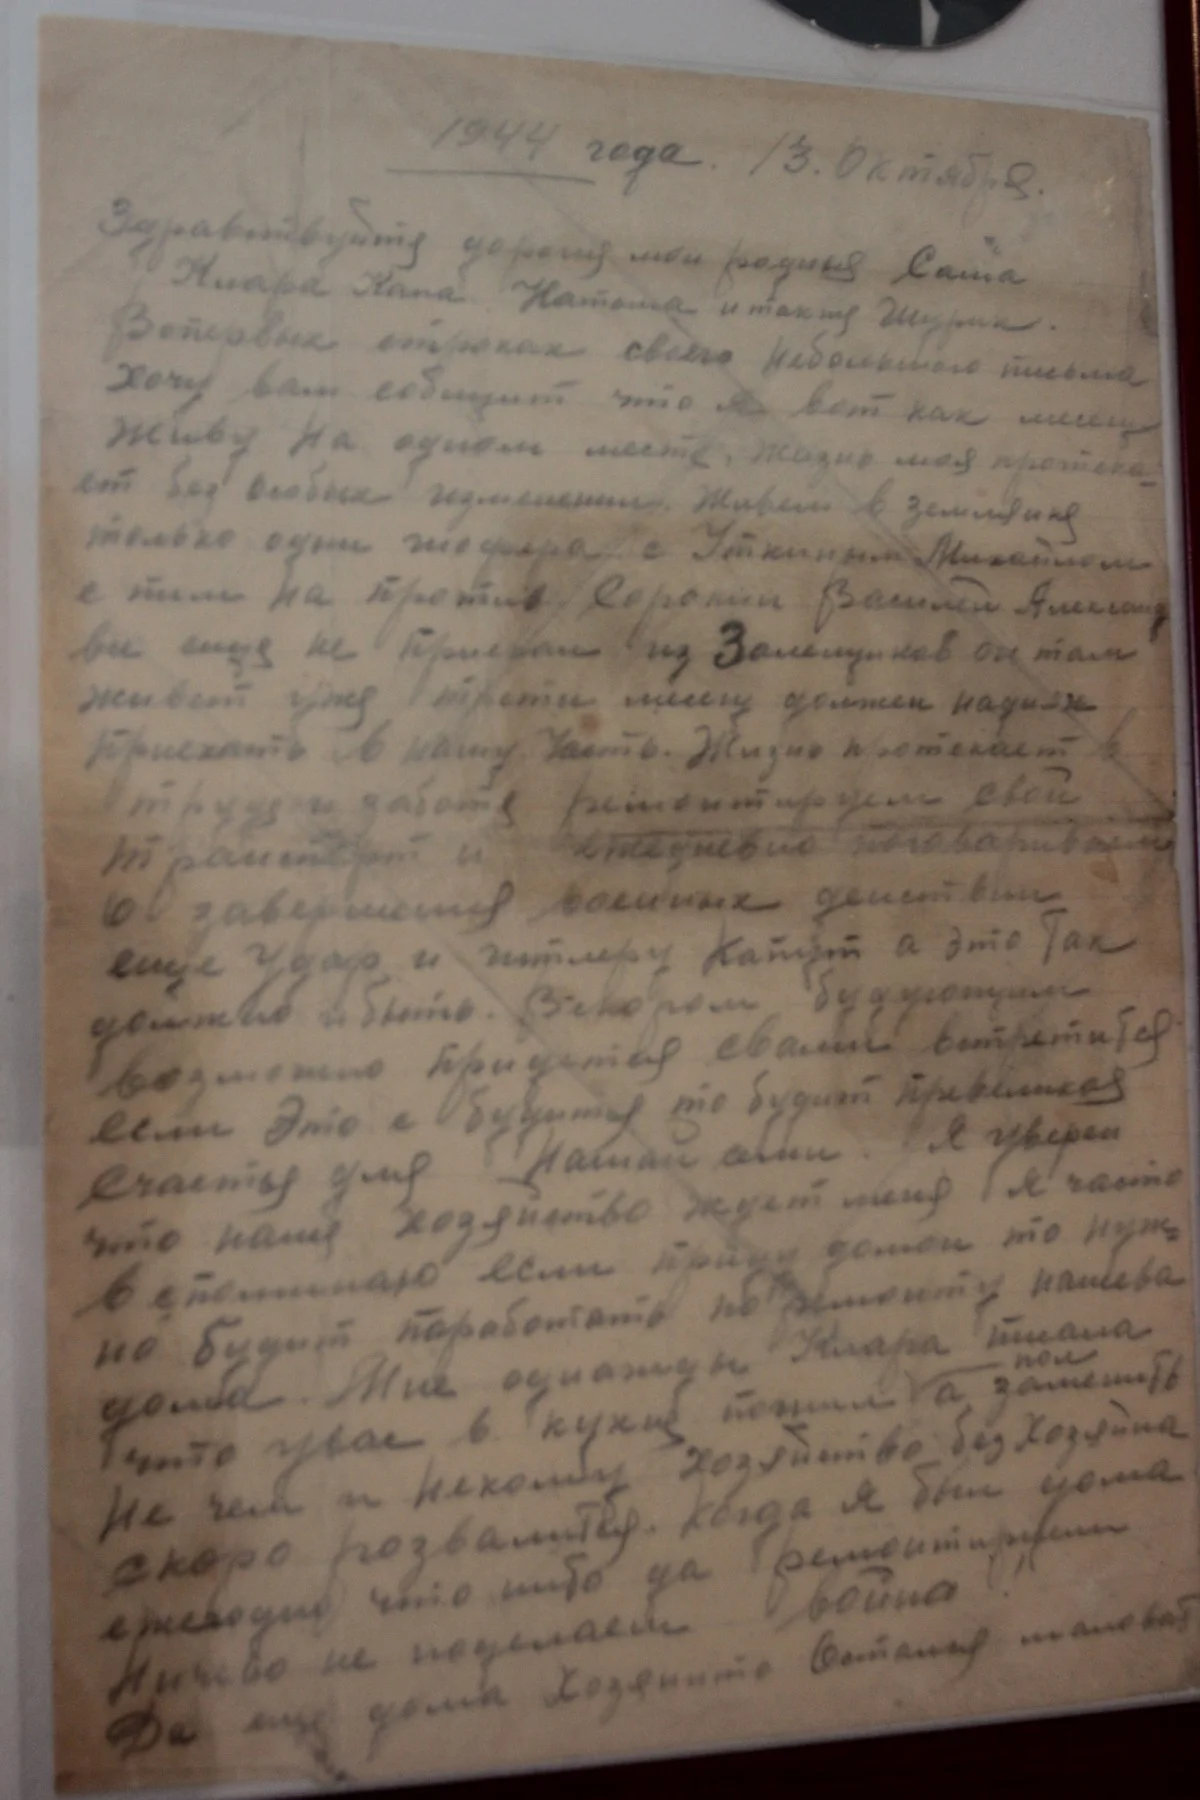 1944 года. 13. Октября.
Здравствуйтя дорогия мои родныя Саша
Клара Капа Натоша и такжя Шурик.
Вопервых строках своего небольшого письма
хочу вам собщит что я вот как месец
живу на одном месте. жизнь моя протека-
ет без особых изменении. Живем в землянкя
только одни шофера с Уткиным Михаилом
с ним на против Сорокин Василей Александ
вич еще не приехал из Залещиков он там
живет ужя трети месец должен на днях
приехать в нашу часть. Жизнь протекает в
труде и заботя ремонтируем свой
транспорт и ежедневно поговариваем
О завершения военных деиствии
еще Удар и гитлеру Капут а это так
должно и быть. Вскором будующим
возможно придется свами встретится
если Это с будится то будит превеликая
счастья для Нашай семи. Я уверен
что наше хозяйство ждет меня Я часто
вспоминаю если приду домои то нуж-
но будит поработать по ремонту нашева
дома. Мне однажды Клара писала
что увас в кухне погнил пол а заменить
не чем и некому хозяйство без Хозяйна
скоро розвалится. Когда Я был дома
ежегодно что нибо да ремонтировали
Ничево не поделаеш война!
Да еще дома Хозяинто Остался маловат